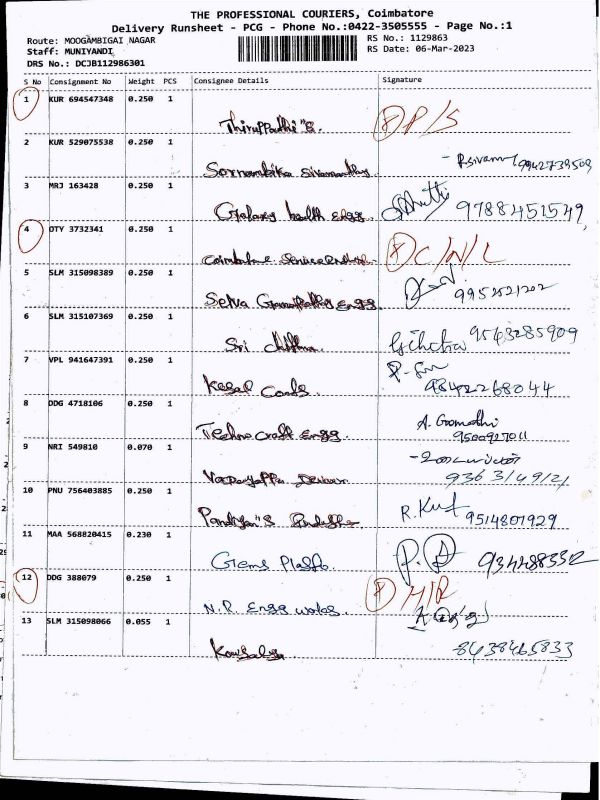 THE PROFESSIONAL COURIERS, Coimbatore
Delivery Runsheet - PCG - Phone No.:0422-3505555 - Page No.:1
Route: MOOGAMBIGAI NAGAR RS No.: 1129863
Staff: MUNIYANDI RS Date: 06-Mar-2023
DRS No.: DCJB112986301
S No Consignment No Weight PCS Consignee Details Signature
1 KUR 694547348 0.250 1
P/S
2 KUR 529075538 0.250 1
Sornambika
3 MRJ 163428 0.250 1
Galaxy health Engg. 9788451549
4 OTY 3732341 0.250 1
Coimbatore C/N/L
5 SLM 315098389 0.250 1
Selva Engg 9952821202
6 SLM 315107369 0.250 1
Sri 9563285909
7 VPL 941647391 0.250 1
9842268044
8 DDG 4718106 0.250 1
Techno craft Engg. A. Gomathi
9500927011
9 NRI 549810 0.070 1
10 PNU 756403885 0.250 1
R. 9514801929
11 MAA 568820415 0.230 1
Gems
12 DDG 388079 0.250 1
N.R. Engg works. H/R
13 SLM 315098066 0.055 1
Kowsalya 8438465833